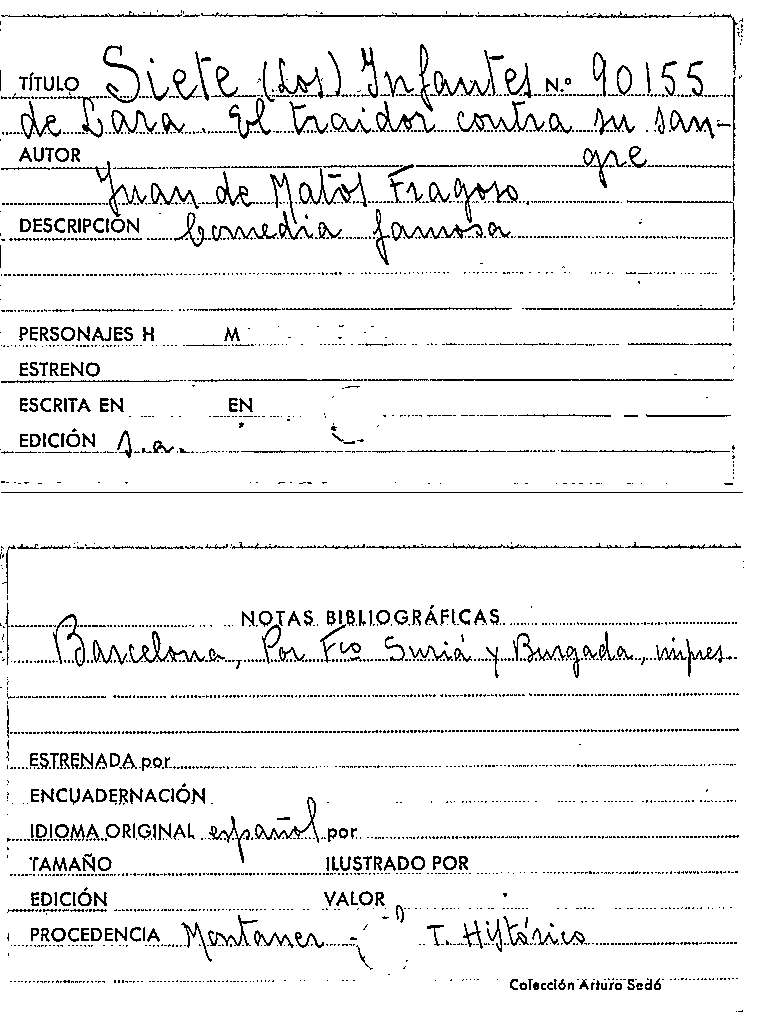 TÍTULO Siete (Los) Infantes N.º 90155
de Lara. El traidor contra su san-
AUTOR gre
Juan de Matos Fragoso.
DESCRIPCIÓN Comedia famosa
PERSONAJES H M
ESTRENO
ESCRITA EN EN
EDICIÓN s.a.
NOTAS BIBLIOGRÁFICAS
Barcelona, Por Fco Suriá y Burgada, impres.
ESTRENADA por
ENCUADERNACIÓN
IDIOMA ORIGINAL español por
TAMAÑO ILUSTRADO POR
EDICIÓN VALOR
PROCEDENCIA Montaner - T. Histórico
Colección Arturo Sedó